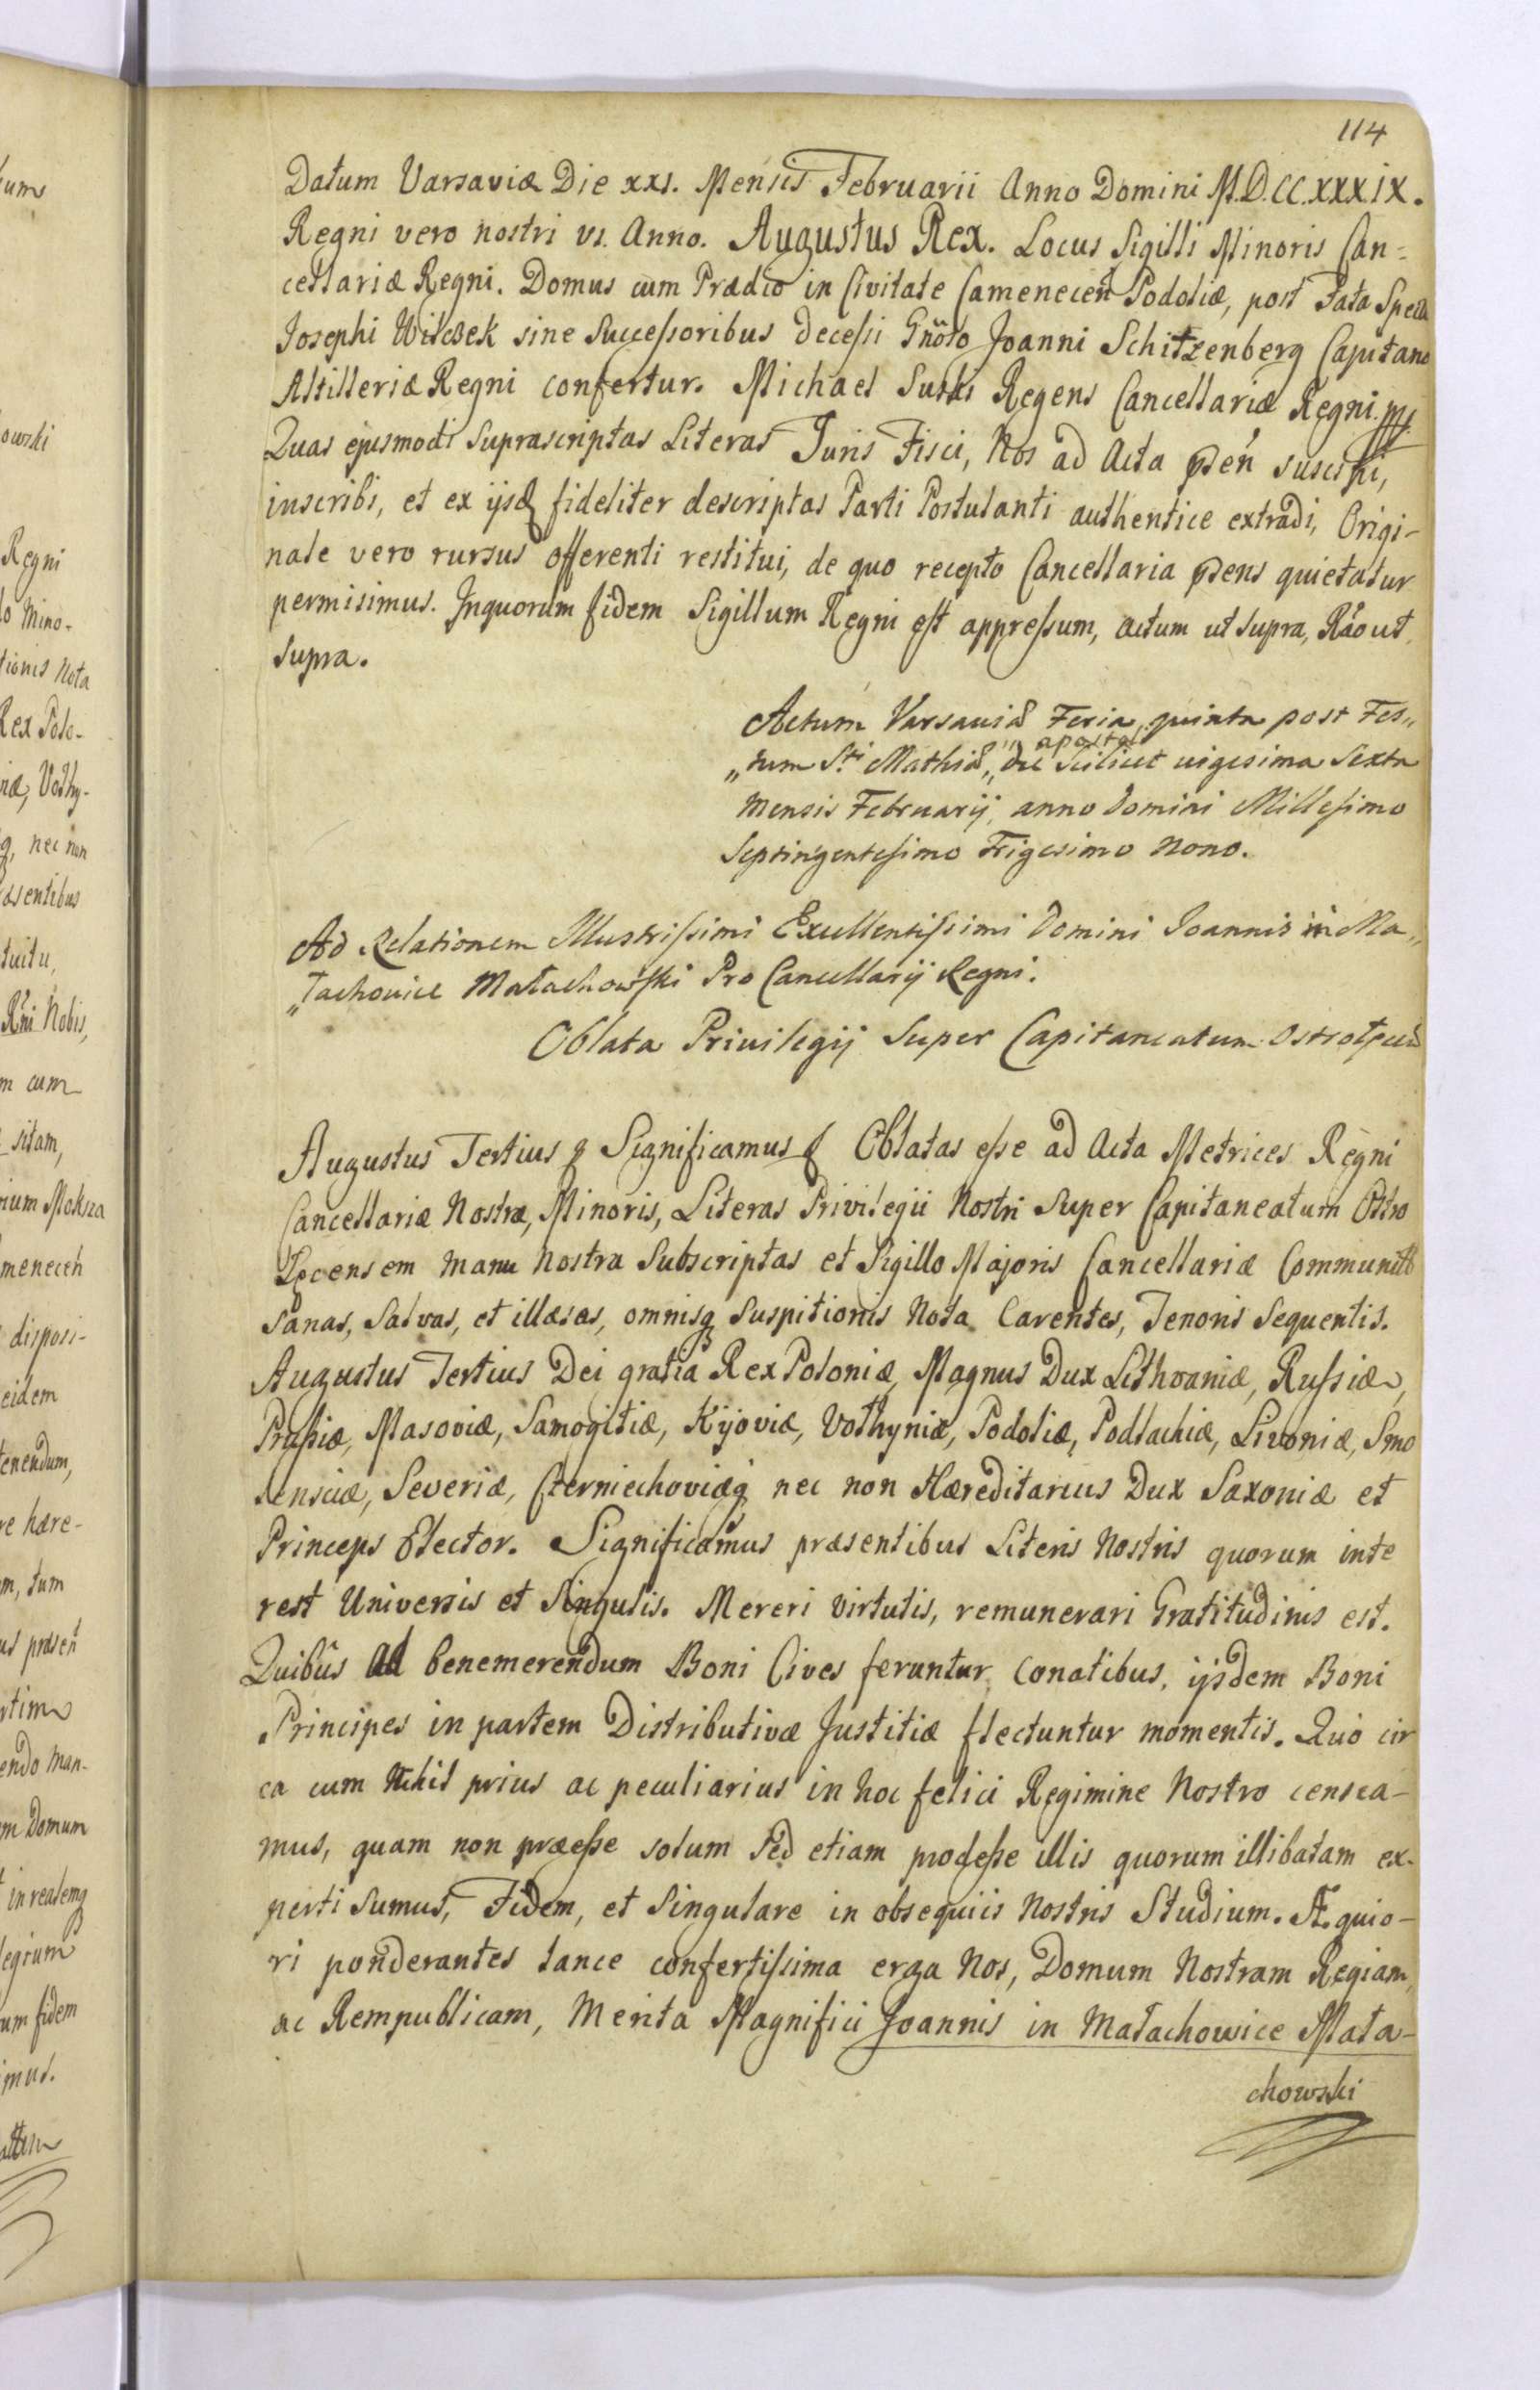 114
Datum Varsaviæ Die xxi. Mensis Februarii Anno Domini M.D.CC.XXX.IX.
Regni vero nostri vi. Anno. Augustus Rex. Locus Sigilli Minoris Can-
cellariæ Regni. Domus cum Prædio in Civitate Camenecen Podoliæ, post Fata
Josephi Wilczek sine Successoribus decessi Gnöso Joanni Schitzenberg Capitano
Altilleriæ Regni confertur. Michael Suski Regens Cancellariæ Regni mp
Quas ejusmodi suprascriptas Literas Juris Fisci, Nos ad Acta psen suscipi,
inscribi, et ex ijsq fideliter descriptas Parti Postulanti authentice extradi, Origi-
nale vero rursus offerenti restitui, de quo recepto Cancellaria psens quietatur
permisimus. Inquorum fidem Sigillum Regni est appressum, actum ut supra, Rão ut
supra.
Actum Varsaviæ Feria quinta post Fes„
„tum Sti Mathiæ apostoli die Scilicet vigesima Sexta
Mensis Februarij, anno Domini Millesimo
Septingentesimo Trigesimo Nono.
Ad Relationem Illustrissimi Excellentissimi Domini Joannis in Ma„
„łachowice Małachowski Pro Cancellarij Regni.
Oblata Privilegij Super Capitaneatum
Augustus Tertius & Significamus & Oblatas esse ad Acta Metrices Regni
Cancellariæ Nostræ, Minoris, Literas Privilegii Nostri Super Capitaneatum Ostro
łęcensem manu Nostra Subscriptas et Sigillo Majoris Cancellariæ Communitas
Sanas, Salvas, et illæsas, omnisq Suspitionis Nota Carentes, Tenoris Sequentis.
Augustus Tertius Dei gratia Rex Poloniæ, Magnus Dux Lithvaniæ, Russiæ,
Prussiæ, Masoviæ, Samogitiæ, Kijoviæ, Volhyniæ, Podoliæ, Podlachiæ, Livoniæ, Smo
lensciæ, Severiæ, Czerniechoviæq nec non Hæreditarius Dux Saxoniæ et
Princeps Elector. Significamus præsentibus Literis Nostris quorum inte
rest Universis et Singulis. Mereri virtutis, remunerari Gratitudinis est.
Quibus ad benemerendum Boni Cives feruntur Conatibus, ijsdem Boni
Principes in partem Distributivæ Justitiæ flectuntur momentis. Quo cir
ca cum Nihil prius ac peculiarius in hoc felici Regimine Nostro censea-
mus, quam non præesse solum sed etiam prodesse illis quorum illibatam ex-
perti sumus, Fidem, et Singulare in obsequiis Nostris Studium. Æquio-
ri ponderantes lance confertissima erga Nos, Domum Nostram Regiam,
ac Rempublicam, Merita Magnifici Joannis in Małachowice Mała-
chowski